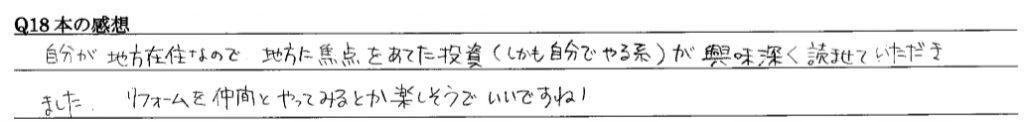 Q18 本の感想
自分が地方在住なので 地方に焦点をあてた投資(しかも自分でやる系)が興味深く読ませていただき
ました. リフォームを仲間とやってみるとか楽しそうでいいですね!